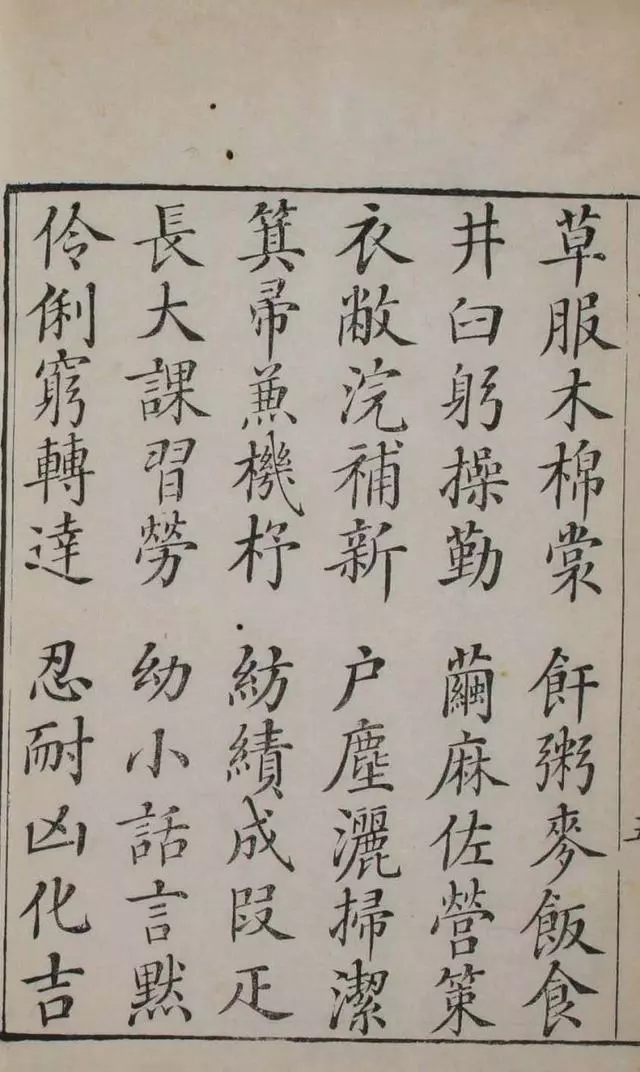 草服木棉裳 飦粥麥飯食
井臼躬操勤 繭麻佐營策
衣敝浣補新 户塵灑掃潔
箕帚兼機杼 紡績成段疋
長大課習勞 幼小話言默
伶俐窮轉達 忍耐凶化吉